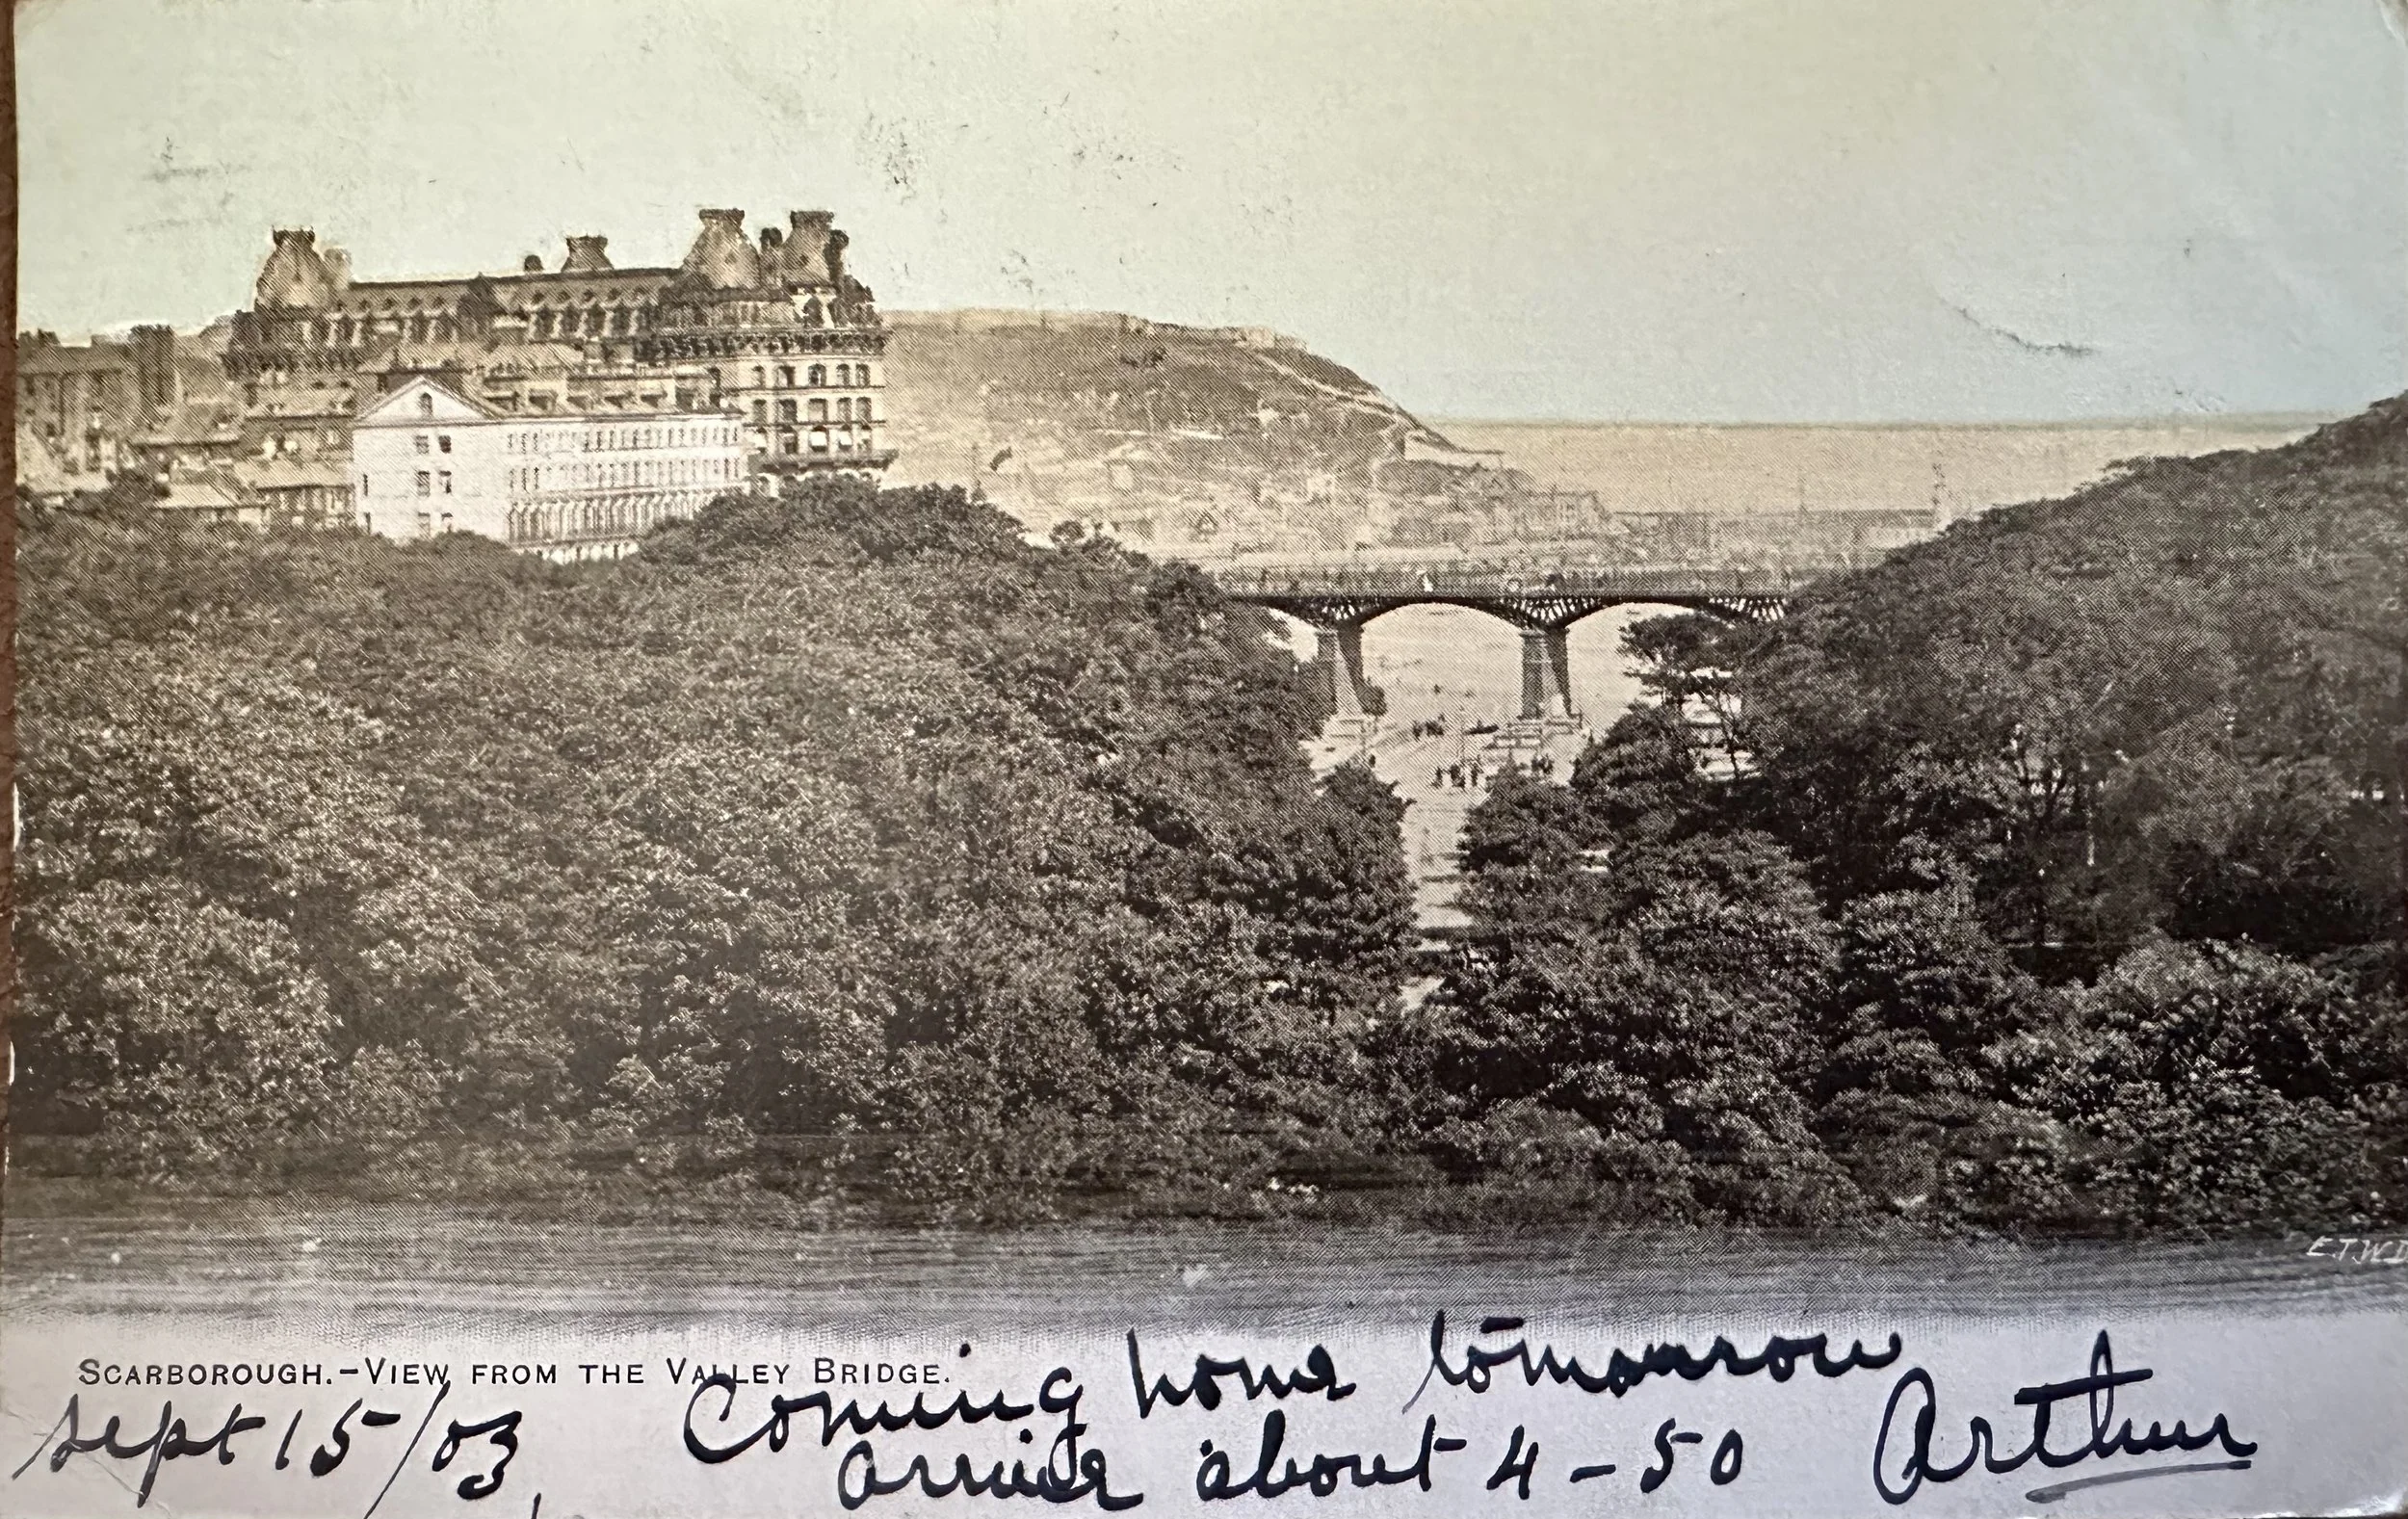 E.T.W.D
SCARBOROUGH.-VIEW FROM THE VALLEY BRIDGE.
Sept 15/03, Coming home tomorrow
arrive about 4-50 Arthur